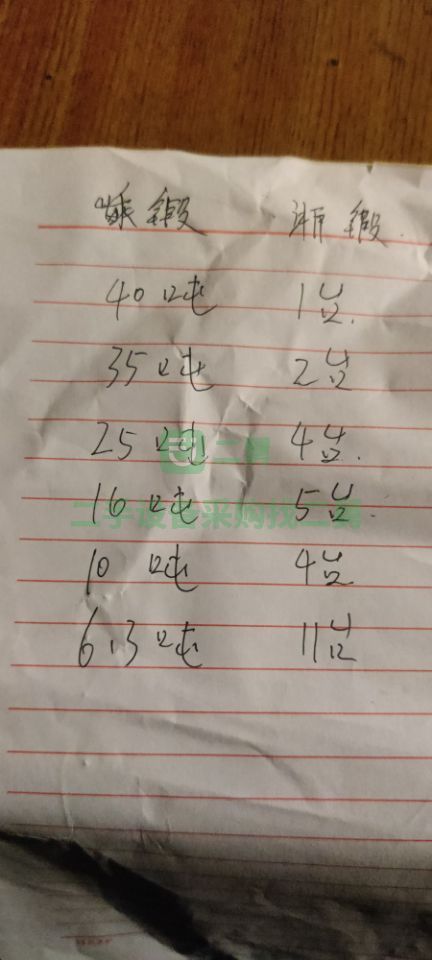 嵊锻 浙锻
40吨 1台.
35吨 2台
25吨 4台.
二手设备采购找二勇
16吨 5台.
10吨 4台
6.3吨 11台